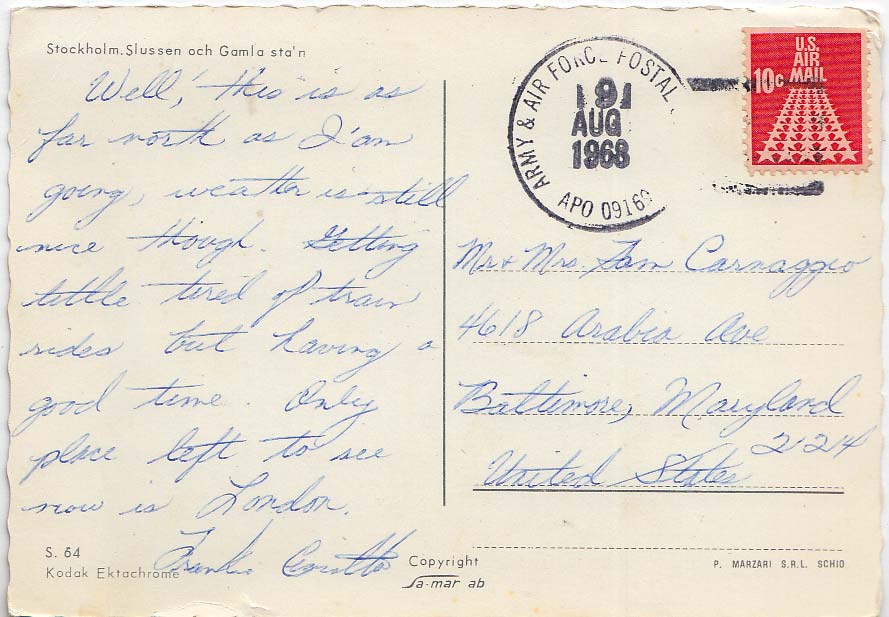 Stockholm. Slussen och Gamla sta'n
Well, this is as
far north as I'am
going, weather is still
nice though. Getting
little tired of train
rides but having a
good time. Only
place left to see
now is London.
Frankie
S. 64
Kodak Ektachrome
Copyright
Sa-mar ab
ARMY & AIR FORCE POSTAL
AUG
1968
APO 09169
U.S.
AIR
MAIL
10c
Mr & Mrs Sam Carnaggio
4618 Arabia Ave
Baltimore, Maryland
21214
United States
P. MARZARI S.R.L. SCHIO